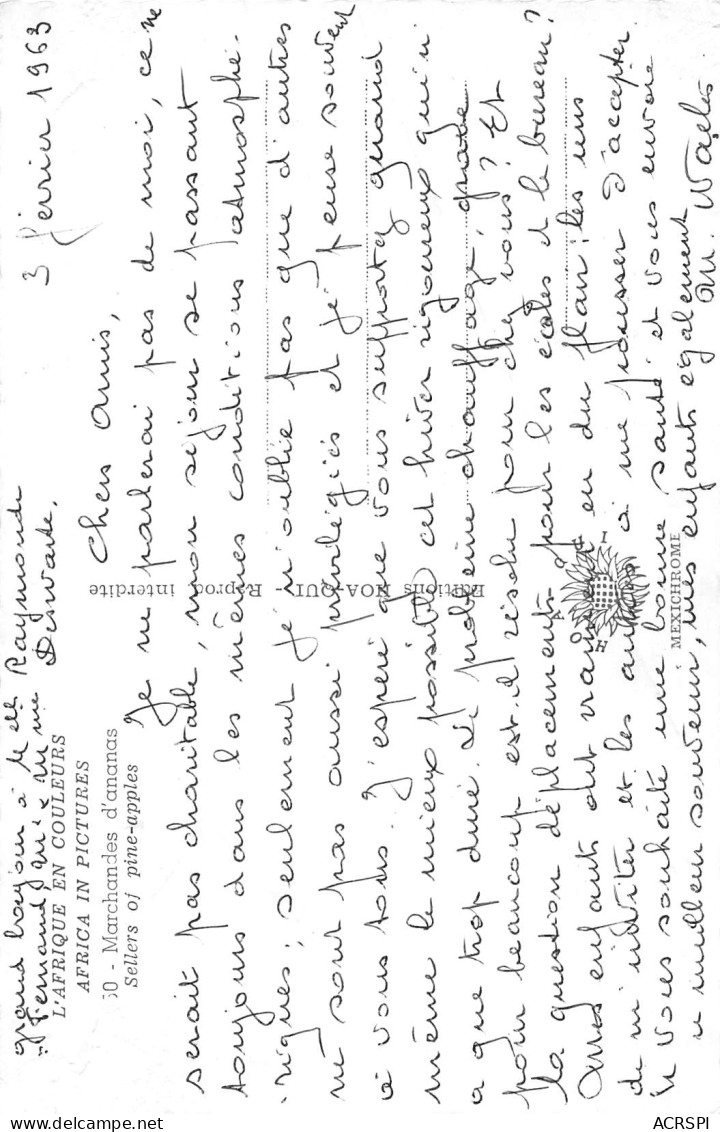 3 février 1963
grand bonjour à Mlle Raymonde
Fernand, qu'à Mme
L'AFRIQUE EN COULEURS
AFRICA IN PICTURES
50 - Marchandes d'ananas
Sellers of pine-apples
Chers amis,
Je ne parlerai pas de moi, ce ne
serait pas charitable, mon séjour se passant
toujours dans les mêmes conditions atmosphé-
riques ; seulement je n'oublie pas que d'autres
ne sont pas aussi privilégiés et je pense souvent
à vous tous. J'espère que vous supportez quand
même le mieux possible cet hiver rigoureux qui n'
a que trop duré. Le problème chauffage, grave
pour beaucoup est-il résolu pour chez vous ? Et
la question déplacements pour les écoles et le bureau ?
Mes enfants ont vraiment eu du flair : les uns
de m'inviter et les autres à me pousser d'accepter.
Je vous souhaite une bonne santé et vous envoie
un meilleur souvenir, mes enfants également
M.
Editions HOA-QUI - Reprod. interdite
MEXICHROME
ACRSPI